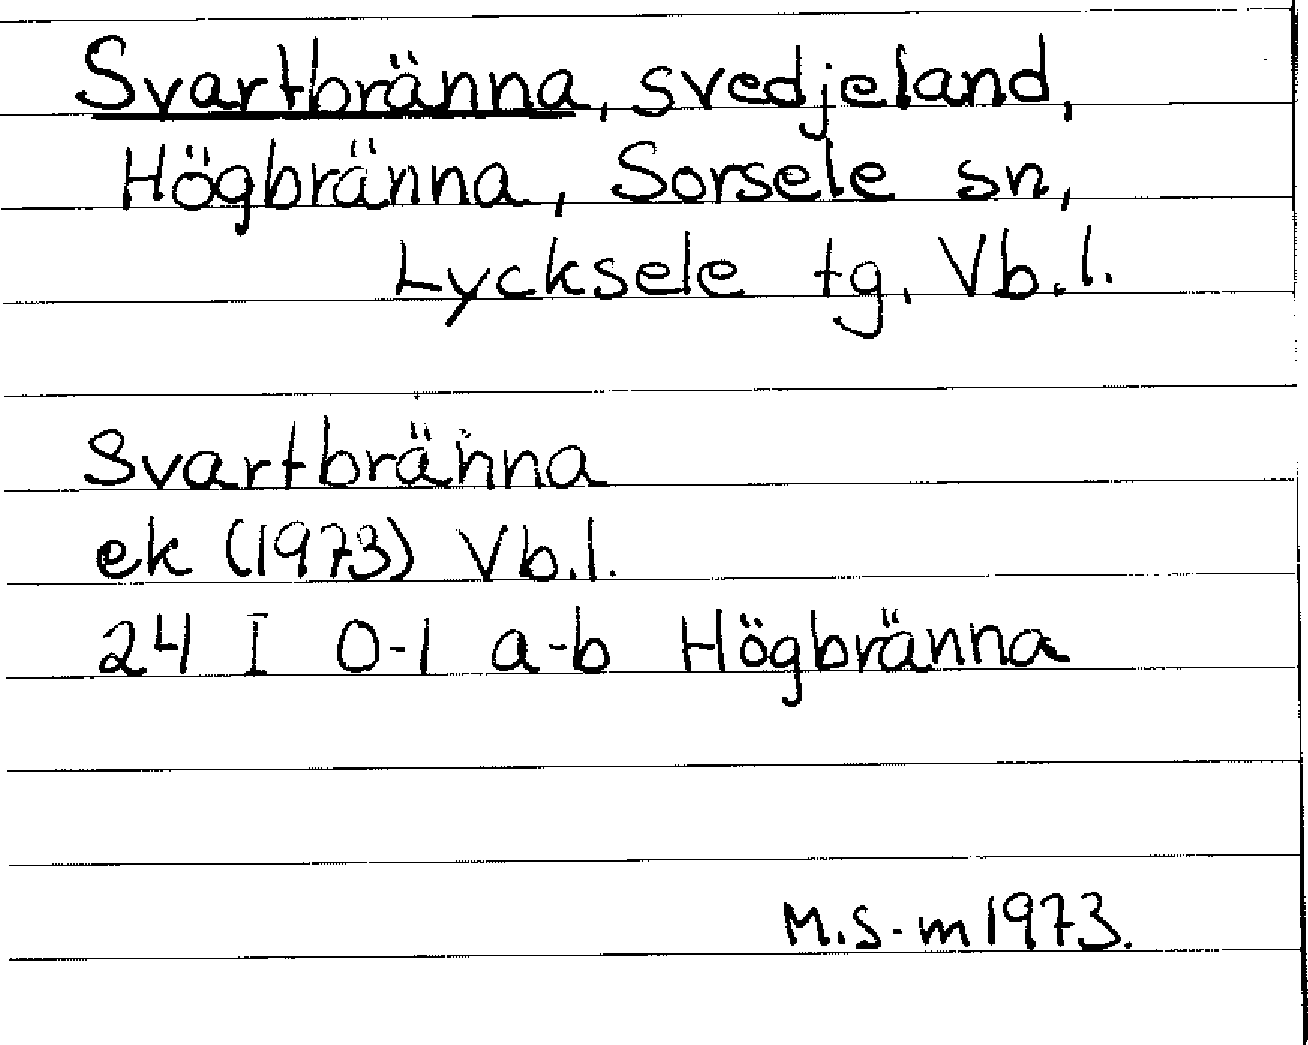 Svartbränna, svedjeland,
Högbränna, Sorsele sn,
Lycksele tg, Vb.l.
Svartbränna
ek (1973) Vb.l.
24 I 0-1 a-b Högbränna
M.S-m 1973.